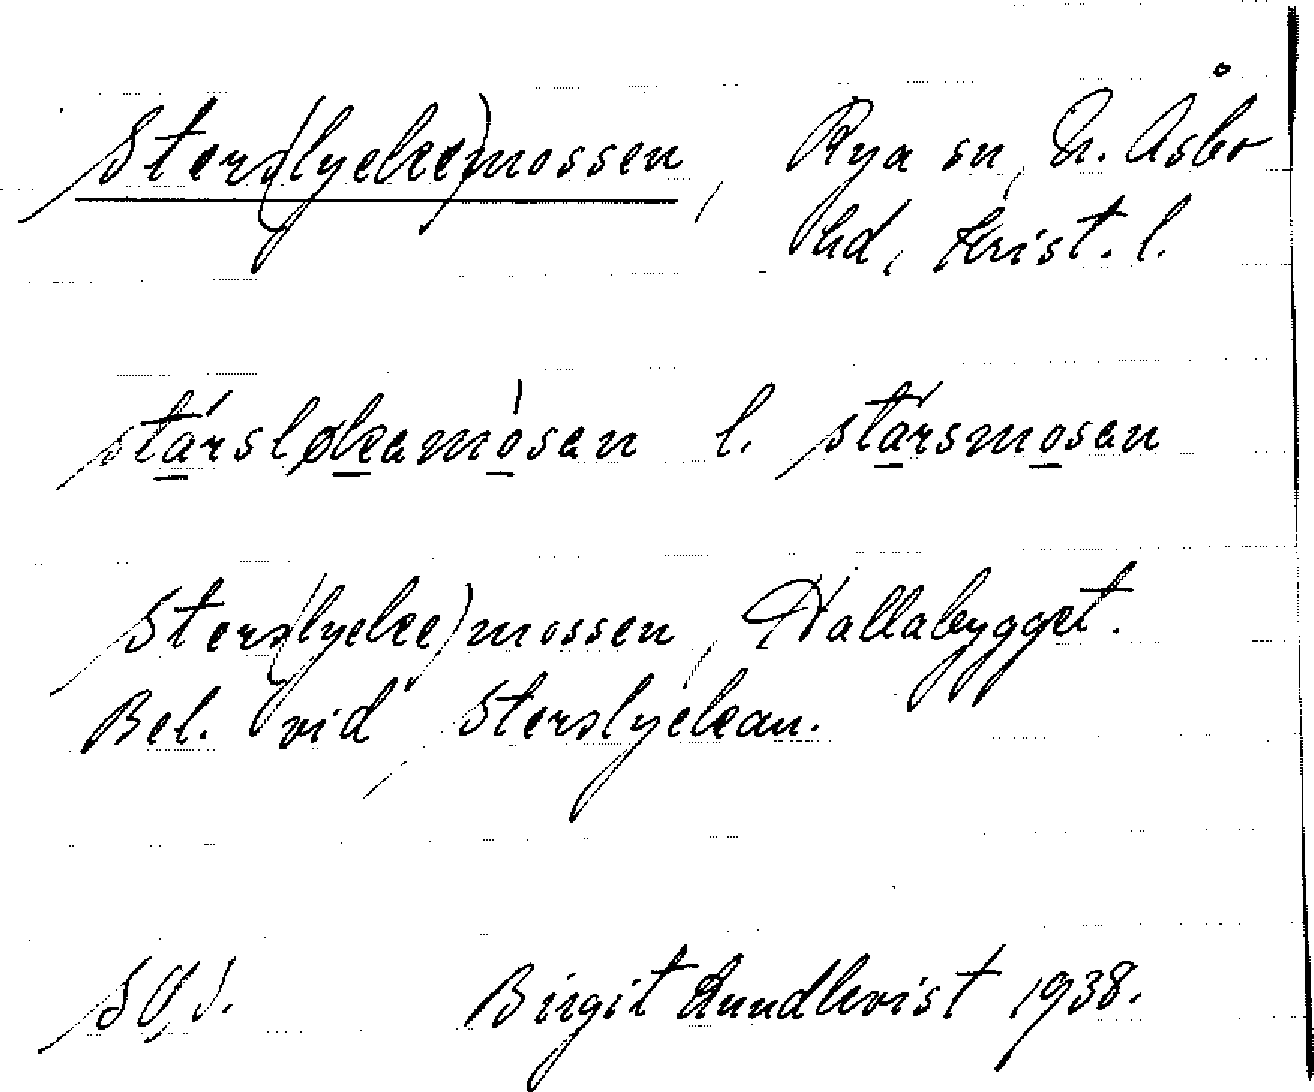 Sters(lycke)mossen, Rya sn, N. Åsbo
hd, Krist. l.
stársløkamósan l. stársmosan
Sters(lycke)mossen, Hallabygget.
Bel. vid Sterslyckan.
Birgit Lundkvist 1938.